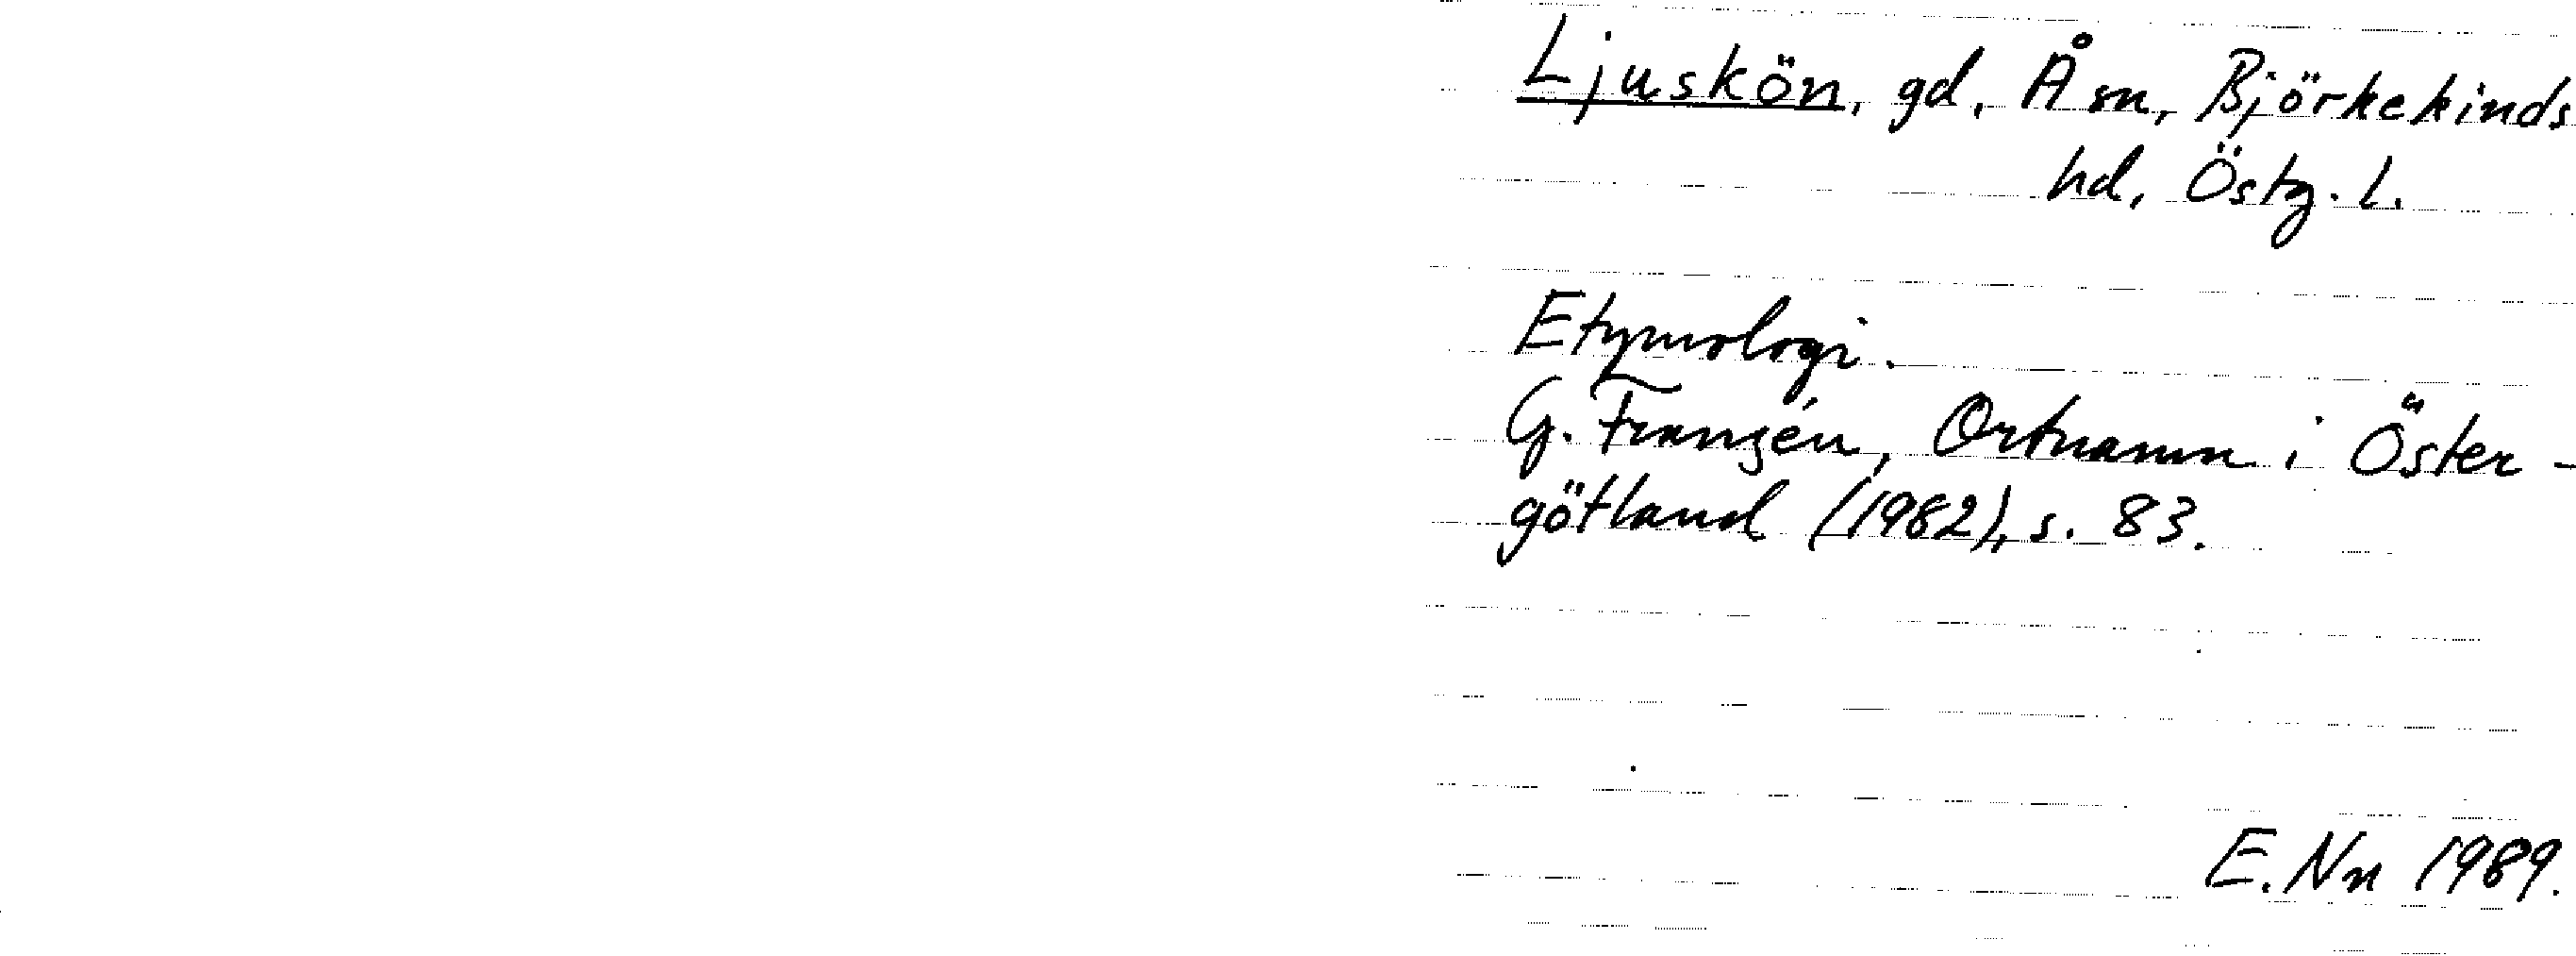 Ljuskön, gd, Å sn, Björkekinds
hd, Östg. l.
Etymologi.
G. Franzén, Ortnamn i Öster-
götland (1982), s. 83.
E. Nn 1989.